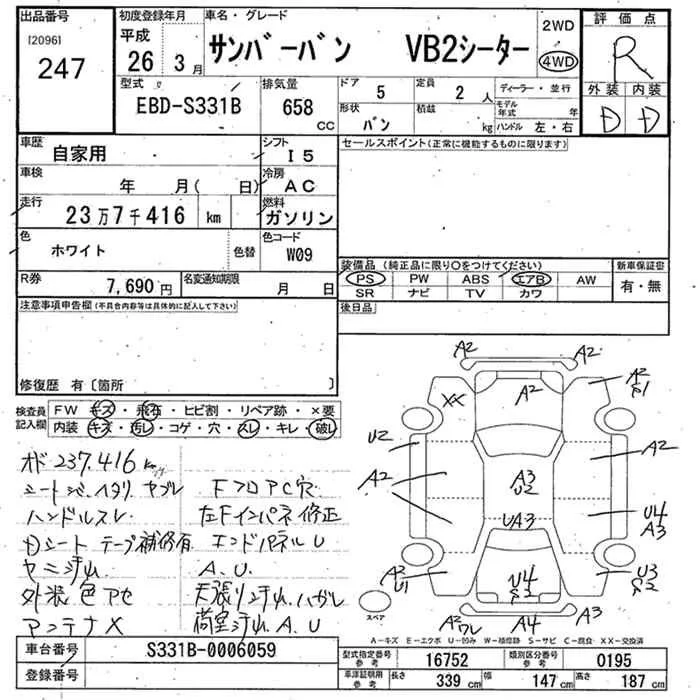 出品番号
[2096]
247
初度登録年月
平成
26 3月
車名・グレード
サンバーバン VB2シーター
2WD
4WD
評価点
R
外装 内装
D D
型式
EBD-S331B
排気量
658 CC
ドア 5
定員 2 人
ディーラー・並行
形状 バン
積載 kg
モデル年式 年
ハンドル 左・右
車歴
自家用
シフト
I5
セールスポイント(正常に機能するものに限ります)
車検
年 月( 日)
冷房
AC
走行
23万7千416 km
燃料
ガソリン
色
ホワイト
色替
色コード
W09
装備品(純正品に限り○をつけてください)
新車保証書
PS PW ABS エアB AW
SR ナビ TV カワ
有・無
R券
7,690円
名変通知期限
月 日
後日品
注意事項申告欄(不具合内容等は具体的に記入して下さい)
修復歴 有〔箇所 〕
検査員記入欄
FW キズ・飛石・ヒビ割・リペア跡・×要
内装 キズ・汚レ・コゲ・穴・スレ・キレ・破レ
オド237.416km
シート ヘタリ ヤブレ
FフロアC穴
ハンドルスレ
左Fインパネ修正
Dシート テープ補修有
エンドパネルU
ヤニ汚れ
A.U
外装色アセ
天張り汚れ、ハガレ
アンテナX
荷室汚れ A.U
A2 A2
XX A2 A2
U2 A2
A2 A3 U2
UA3 U4 A3
A2 U1 U4 U3
スペア
A2 ワレ A4 A3
A-キズ E-エクボ U-凹み W-補修跡 S-サビ C-腐食 XX-交換済
車台番号
S331B-0006059
登録番号
型式指定番号 参考
16752
類別区分番号 参考
0195
車庫証明用 参考
長さ 339 cm
幅 147 cm
高さ 187 cm